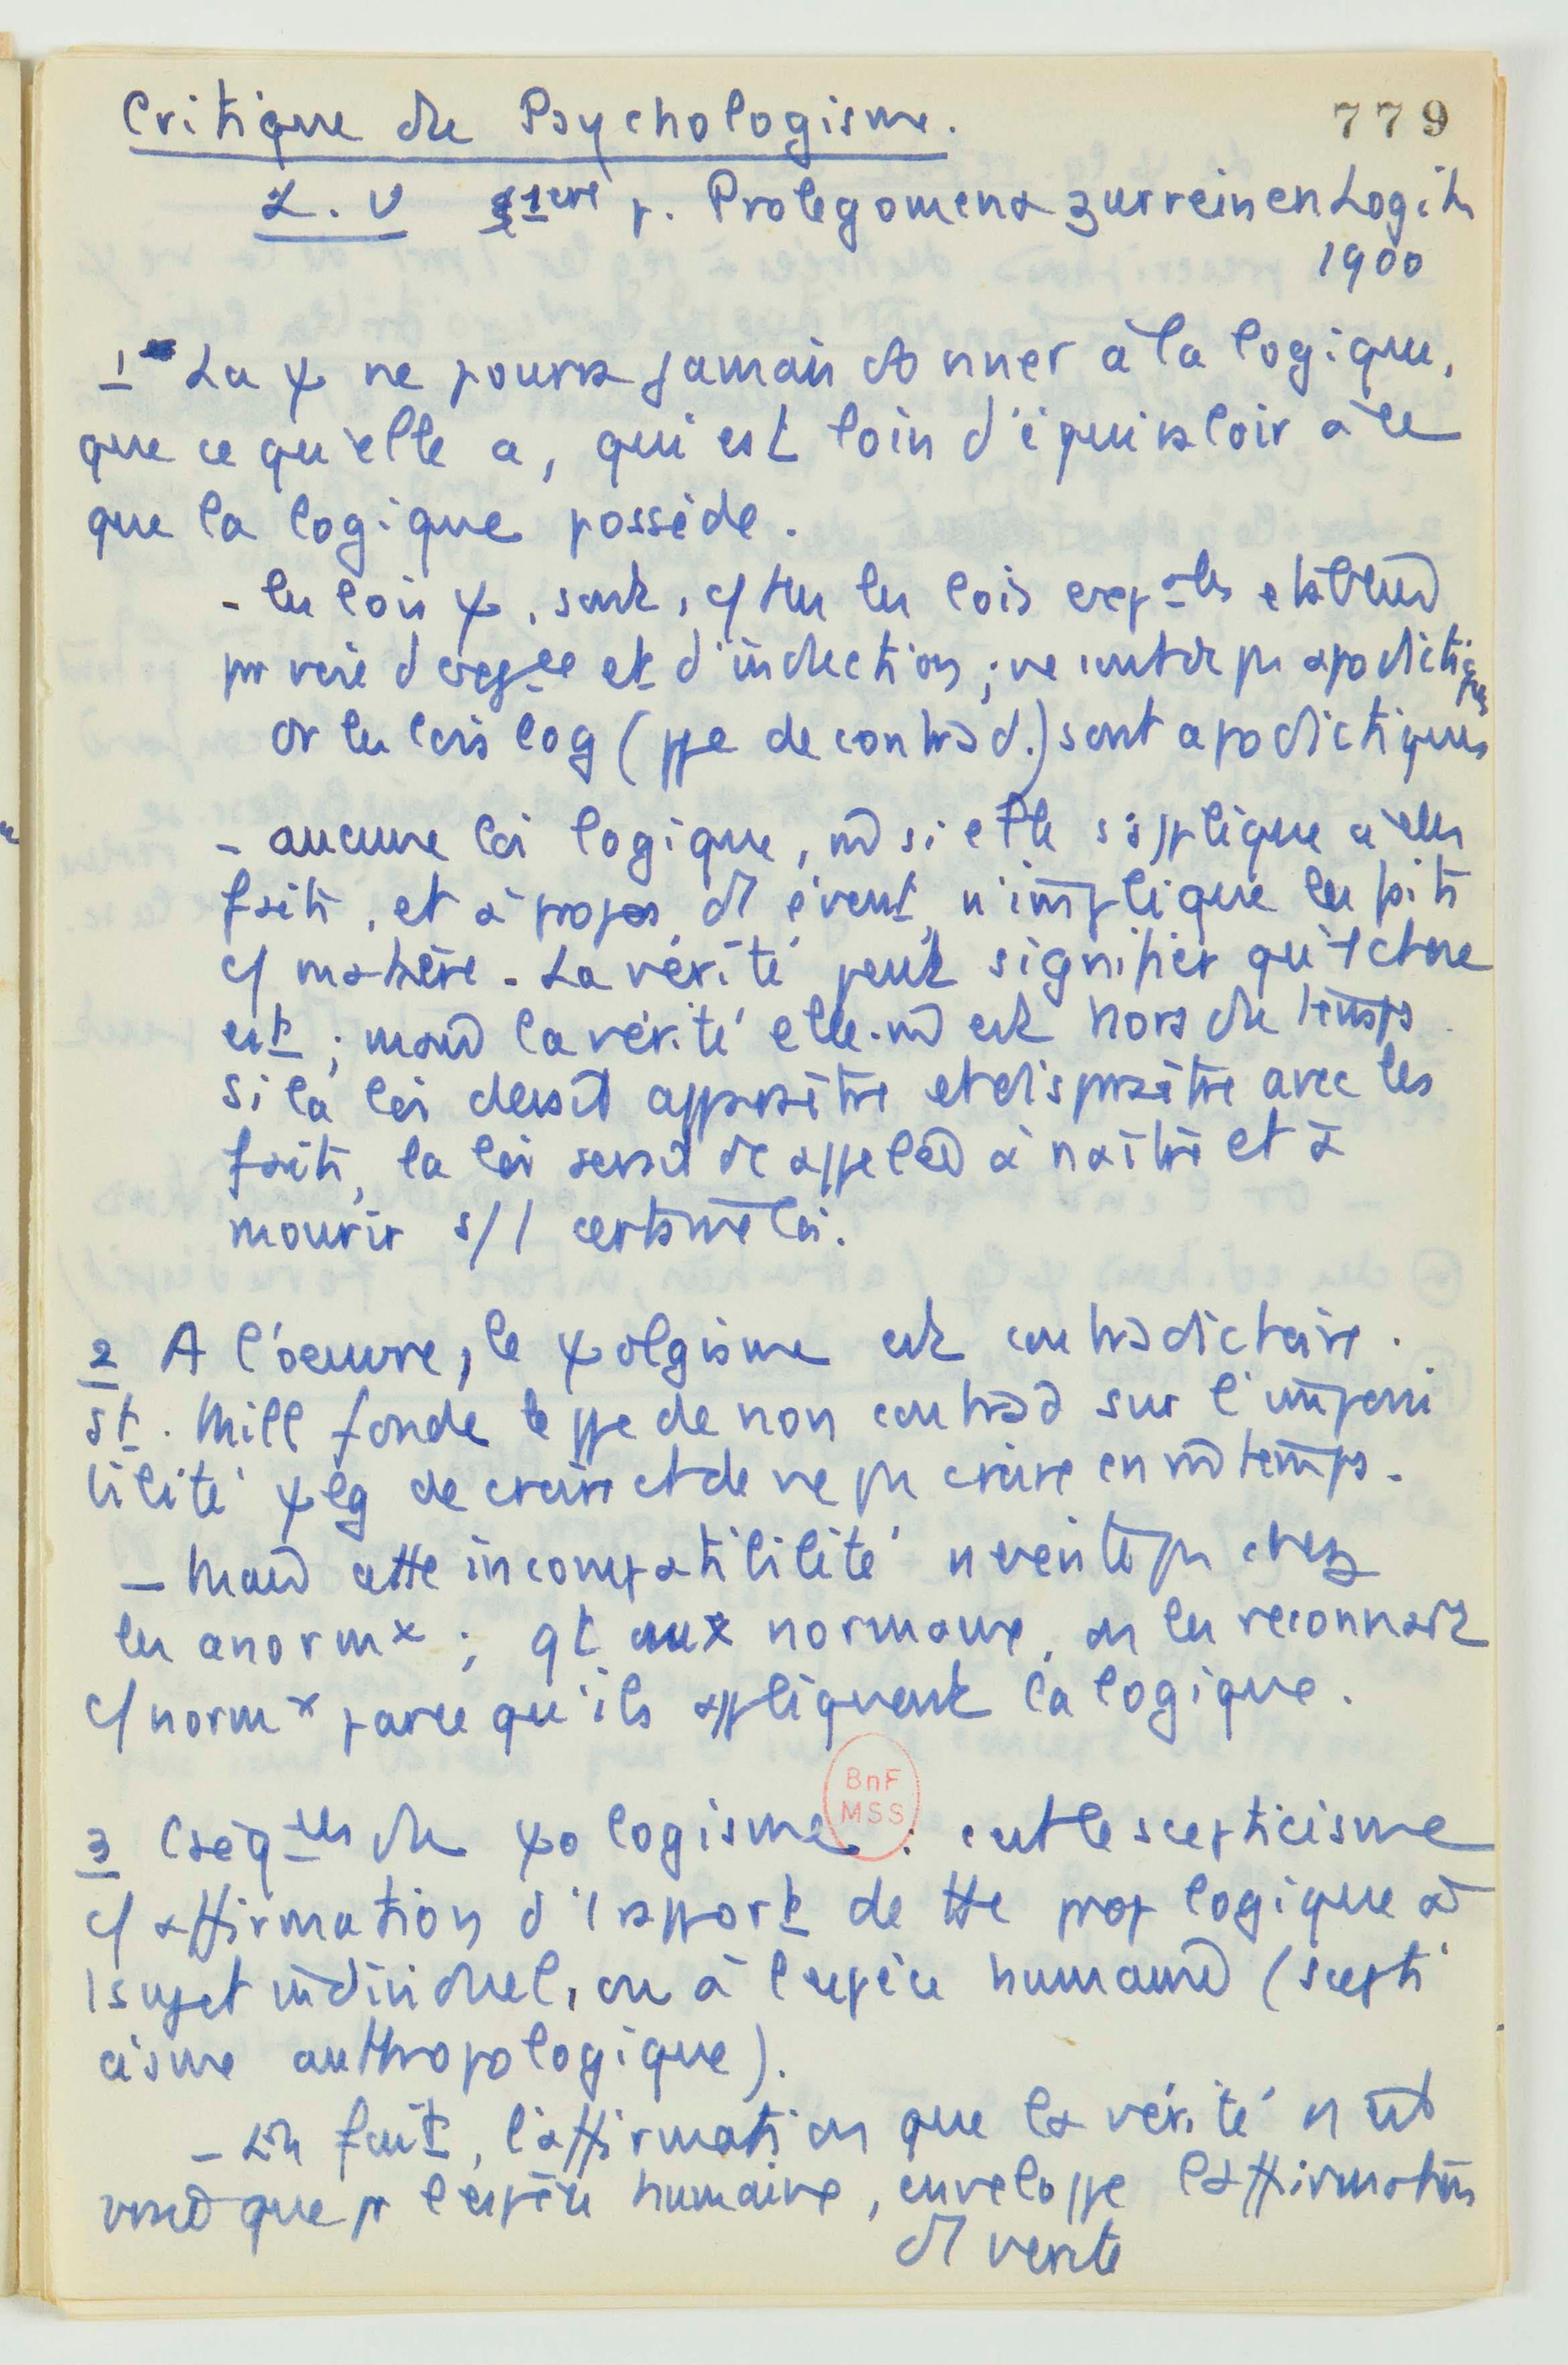 Critique du Psychologisme.
779
L. U 1ère p. Prolegomena zur reinen Logik
1900
1 La ψ ne pourra jamais donner à la logique,
que ce qu'elle a, qui est loin d'équivaloir à ce
que la logique possède.
- les lois ψ, sont, c/ ttes les lois expales établies
par voie d'expce et d'induction ; ne sont dc pas apodictiques
Or les lois log (ppe de contrad.) sont apodictiques
- aucune loi logique, m̄ si elle s'applique à des
faits, et à propos d'1 évent, n'implique les faits
c/ matière. La vérité peut signifier qu'1 chose
est ; mais la vérité elle-m̄ est hors du temps.
Si la loi devait apparaître et disparaître avec les
faits, la loi serait dc appelée à naître et à
mourir s/ 1 certaine loi.
2 A l'oeuvre, le ψolgisme est contradictoire.
St. Mill fonde le ppe de non contrad sur l'impossi
bilité ψlg de croire et de ne pas croire en m̄ temps.
- Mais cette incompatibilité n'existe pas chez
les anormx ; qt aux normaux, on les reconnaît
c/ normx parce qu'ils appliquent la logique.
3 Cséqces du ψologisme : c'est le scepticisme
BnF
MSS
c/ affirmation d'1 rapport de tte prop logique à
1 sujet individuel, ou à l'espèce humaine (scepti
cisme anthropologique).
- En fait, l'affirmation que la vérité n'est
vraie que pr l'espèce humaine, enveloppe l'affirmation
d'1 vérité